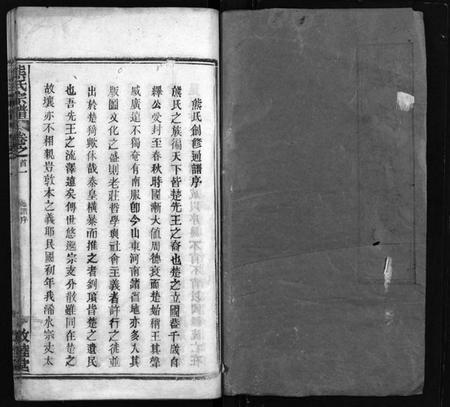 熊氏創修通譜序
熊氏之族徧天下皆楚先王之裔也楚之立國蓋千歲自
繹公受封至春秋時國漸大值周德衰而楚始稱王其聲
威廣遠不獨奄有南服卽今山東河南諸舊地亦多入其
版圖文化之盛則老莊哲學與社會主義者許行之徒並
出於楚猗歟休哉秦皇橫暴而推之者劉項皆楚之遺民
也吾先王之流澤遠矣傳世悠邈宗支分散雖同在楚之
故壤亦不相親豈敦本之義耶民國初年我涌水宗丈太
熊氏宗譜
卷之首一
通譜序